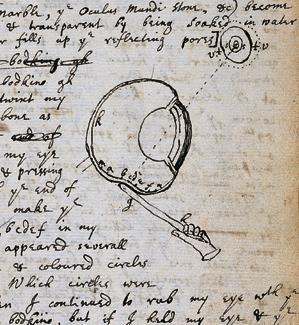 marble, yᵉ Oculus Mundi stone, &c) become
& transparent by being soaked in water
fills up yᵉ reflecting pores]
bodking gh
bodkine gh
twixt my
bone as
end of
my eye
& pressing
yᵉ end of
make yᵉ
bcdef in my
appeared severall
& coloured circles
Which circles were
I continued to rub my eye with yᵉ
bodkine, but if I held my eye & yᵉ